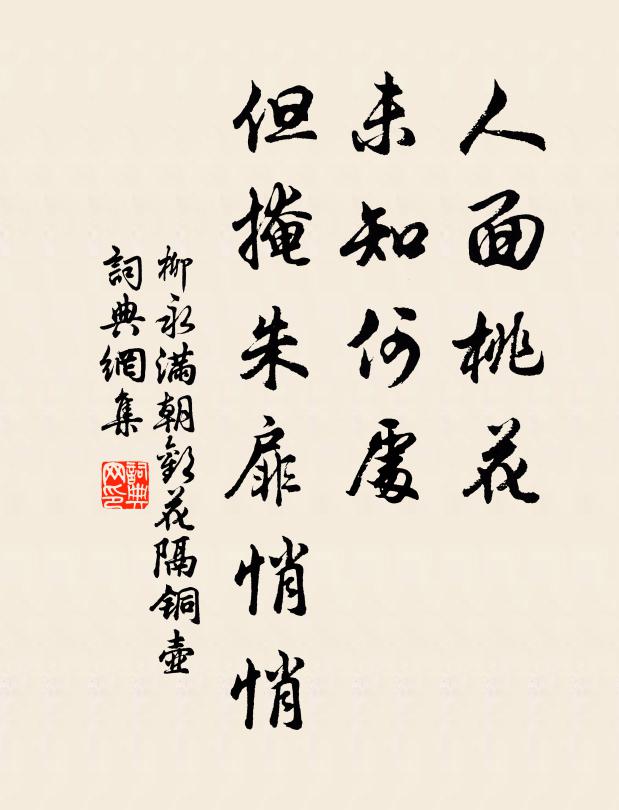 人面桃花
未知何處
但掩朱扉悄悄
柳永滿朝歡花隔銅壺
詞典網集
詞典網印